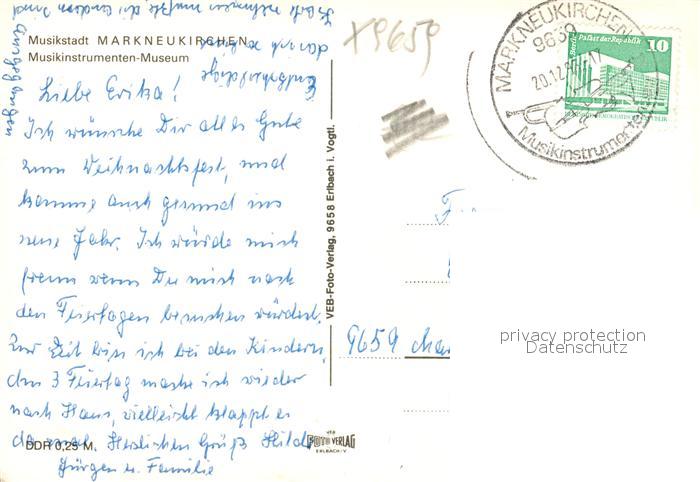 Musikstadt MARKNEUKIRCHEN
Musikinstrumenten-Museum
Liebe Erika!
Ich wünsche Dir alles Gute
zum Weihnachtsfest, und
komme auch gesund ins
neue Jahr. Ich würde mich
freuen wenn Du mich nach
den Feiertagen besuchen würdest.
Zur Zeit bin ich bei den Kindern,
den 3 Feiertag mache ich wieder
nach Haus, vielleicht klappt es
da mal. Herzlichen Gruß Hilde
Jürgen u. Familie
DDR 0,25 M
angegangen
VEB-Foto-Verlag, 9658 Erlbach i. Vogtl.
X9659
MARKNEUKIRCHEN
20.12.
Musikinstrumenten
Berlin Palast der Republik
10
9659
VEB
FOTO VERLAG
ERLBACH/V
privacy protection
Datenschutz